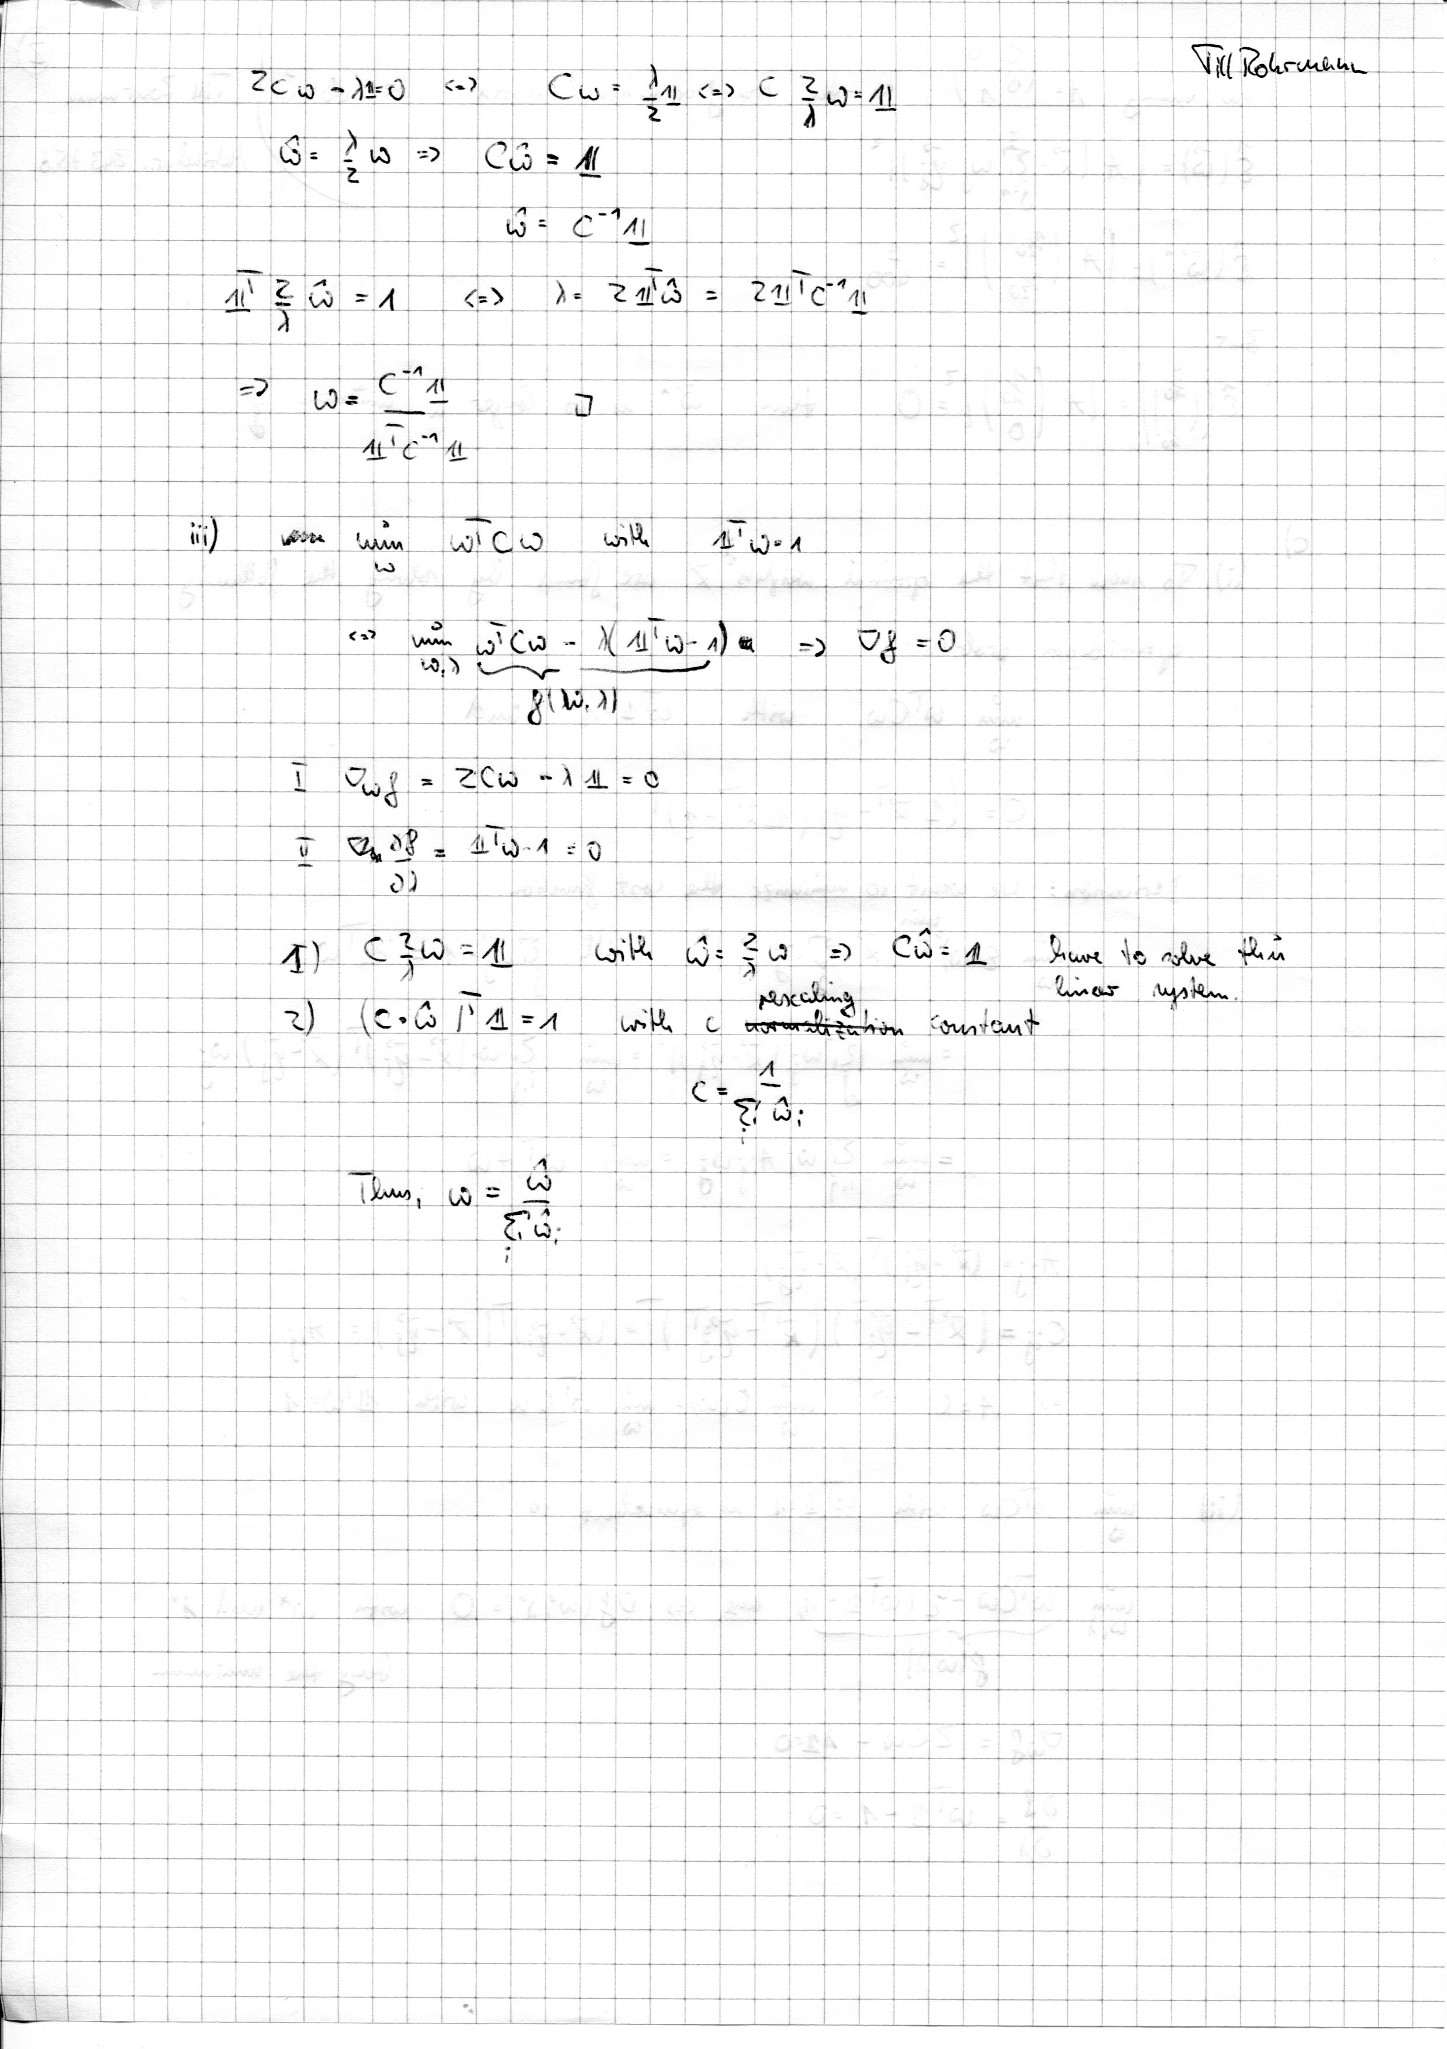 Till Rohrmann
2Cω - λ𝟙 = 0 <=> Cω = λ/2 𝟙 <=> C 2/λ ω = 𝟙
ω̂ = λ/2 ω => Cω̂ = 𝟙
ω̂ = C⁻¹𝟙
𝟙ᵀ 2/λ ω̂ = 1 <=> λ = 2𝟙ᵀω̂ = 2𝟙ᵀC⁻¹𝟙
=> ω = C⁻¹𝟙 / 𝟙ᵀC⁻¹𝟙 □
iii) min_ω ωᵀCω with 𝟙ᵀω = 1
<=> min_{ω,λ} ωᵀCω - λ(𝟙ᵀω - 1) => ∇f = 0
f(ω,λ)
I ∇_ω f = 2Cω - λ𝟙 = 0
II ∂f/∂λ = 𝟙ᵀω - 1 = 0
1) C 2/λ ω = 𝟙 with ω̂ = 2/λ ω => Cω̂ = 𝟙 have to solve this
linear system.
2) (c·ω̂)ᵀ𝟙 = 1 with c rescaling normalization constant
c = 1 / Σ_i ω̂_i
Thus, ω = ω̂ / Σ_i ω̂_i